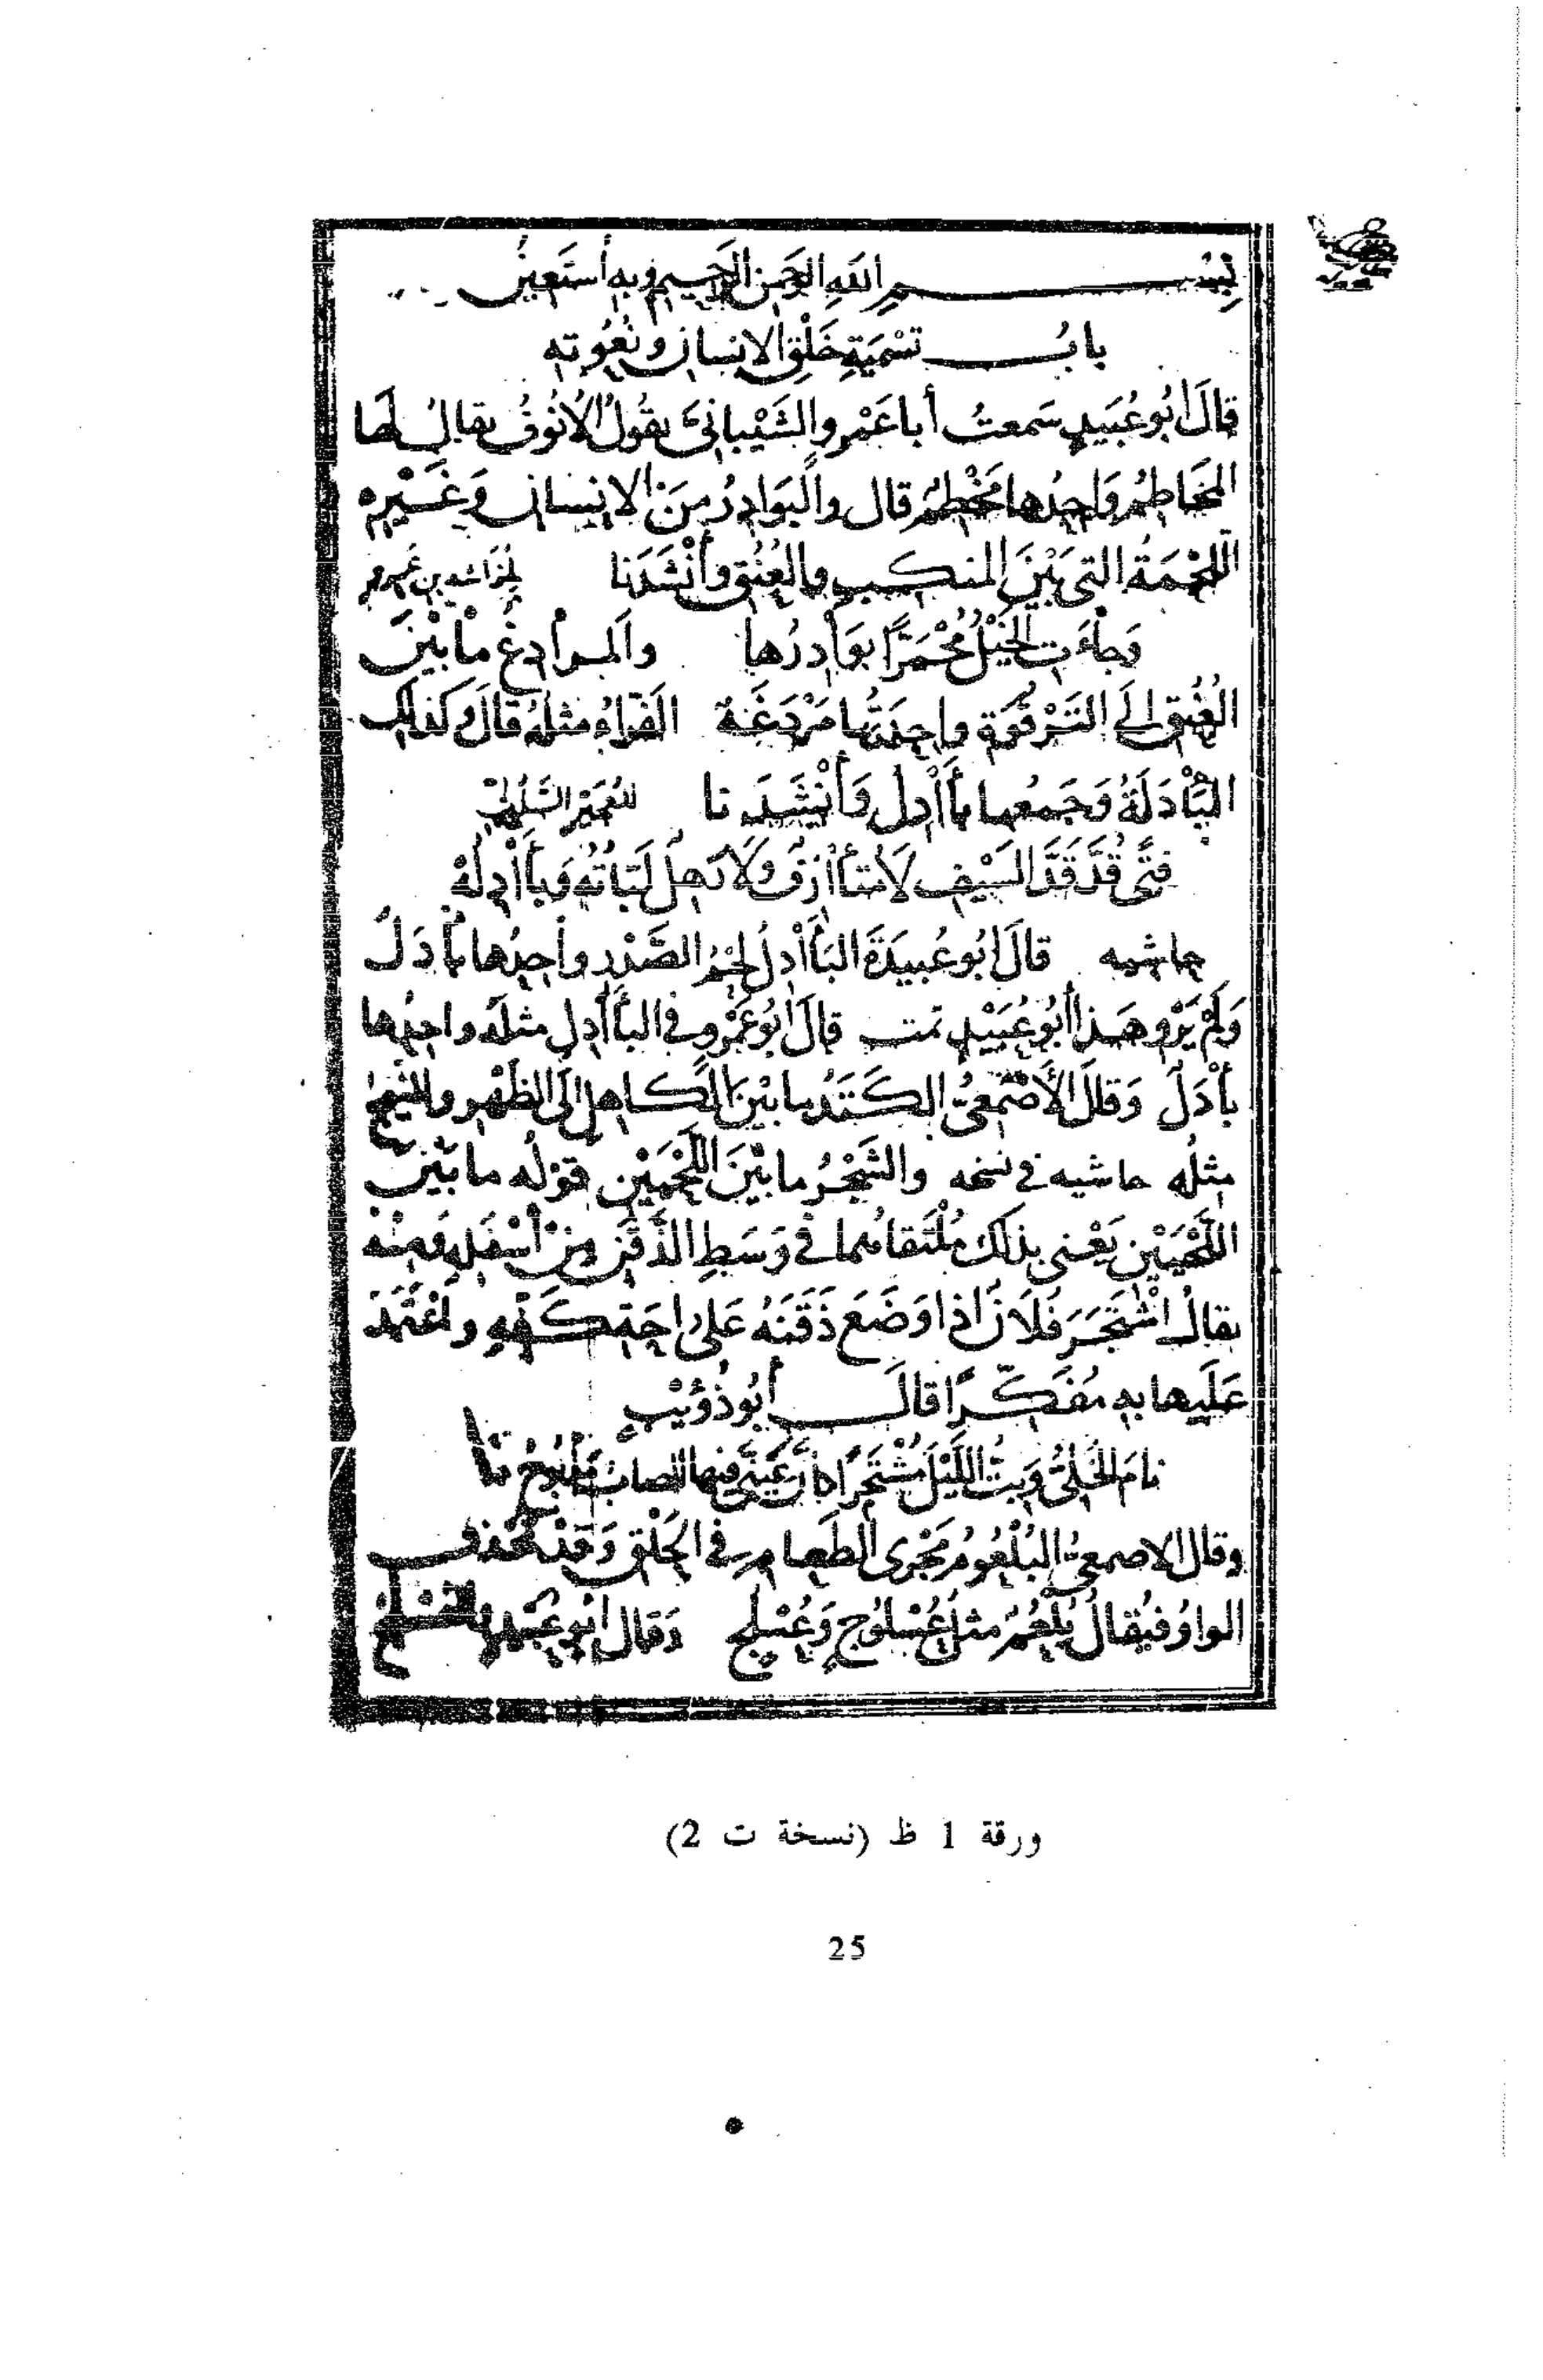 بسم الله الرحمن الرحيم وبه أستعين
باب تسمية خلق الانسان ونعوته
قالَ ابُو عُبَيدٍ سَمعتُ أبا عَمْرٍو الشَّيْبانيَّ يقُولُ الأنُوفُ يقالُ لَها
المَخَاطِمُ وَاحِدُها مَخْطِمٌ قال والبَوَادِرُ مِنَ الانسانِ وَغَيْرِهِ
اللَّحْمَةُ التي بَيْنَ المنكبِ والعُنُقِ وأَنْشَدَنا لخراشة بن عمرو
وَجاءَتِ الخَيْلُ مُحْمَرًّا بَوَادِرُها والمرادِغُ مابَيْنَ
العُنُقِ إلَى التَّرْقُوَةِ واحِدَتُها مَرْدَغَةٌ الفَرّاءُ مثلَهُ قالَ وَكذلك
البَأْدَلَةُ وَجَمعُها بَأَادِل وَأنْشَدَنا للعُجَيرِ السَّلُوليّ
فتًى قُدَّ قَدَّ السَّيْفِ لَا مُتَأَازِفٌ وَلَا رَهِلٌ لَبَّاتُهُ وَبَأَادِلُهْ
حاشيه قالَ ابُو عُبيدَةَ البَأَادِلُ لحْمُ الصَّدْرِ واحِدُها بَأْدَلٌ
وَلَمْ يَرْوِ هذا أبُو عُبَيْدٍ تمت قالَ ابُو عَمْرٍو في البَأَادِلِ مثلَه واحدُها
بَأْدَلٌ وَقالَ الأَصْمَعيُّ الكَتَدُ ما بيْنَ الكاهِلِ إلَى الظَهْرِ والثَّبَجُ
مثلُه حاشيه في نسخه والشَّجْرُ ما بَيْنَ اللَّحْيَيْنِ قوْلُه ما بَيْنَ
اللَّحْيَيْنِ يَعْني بذلك مُلْتَقاهُما في وَسَطِ الذَّقَنِ مِنْ أسْفَلِهِ وَمِنْهُ
يقالُ اشْتَجَرَ فُلَانٌ اذا وَضَعَ ذَقَنَهُ عَلى راحَةِ كَفِّهِ واعْتَمَدَ
عَلَيها بهِ مُفَكِّرًا قالَ أبُو ذُؤَيْبٍ
نامَ الخَلِيُّ وَبِتُّ اللَّيْلَ مُشْتَجِرًا كأنَّ عَيْنيَ فيها الصابُ مَذْبُوحُ
وقال الاصمعيُّ البُلْعُومُ مَجْرى الطَّعامِ في الحَلْقِ وَقدْ تُحْذَفُ
الواوُ فيُقالُ بُلْعُمٌ مثلُ عُسْلُوجٍ وَعُسْلُجٍ وَقال ابُو عُبَيْدٍ
ورقة 1 ظ (نسخة ت 2)
25